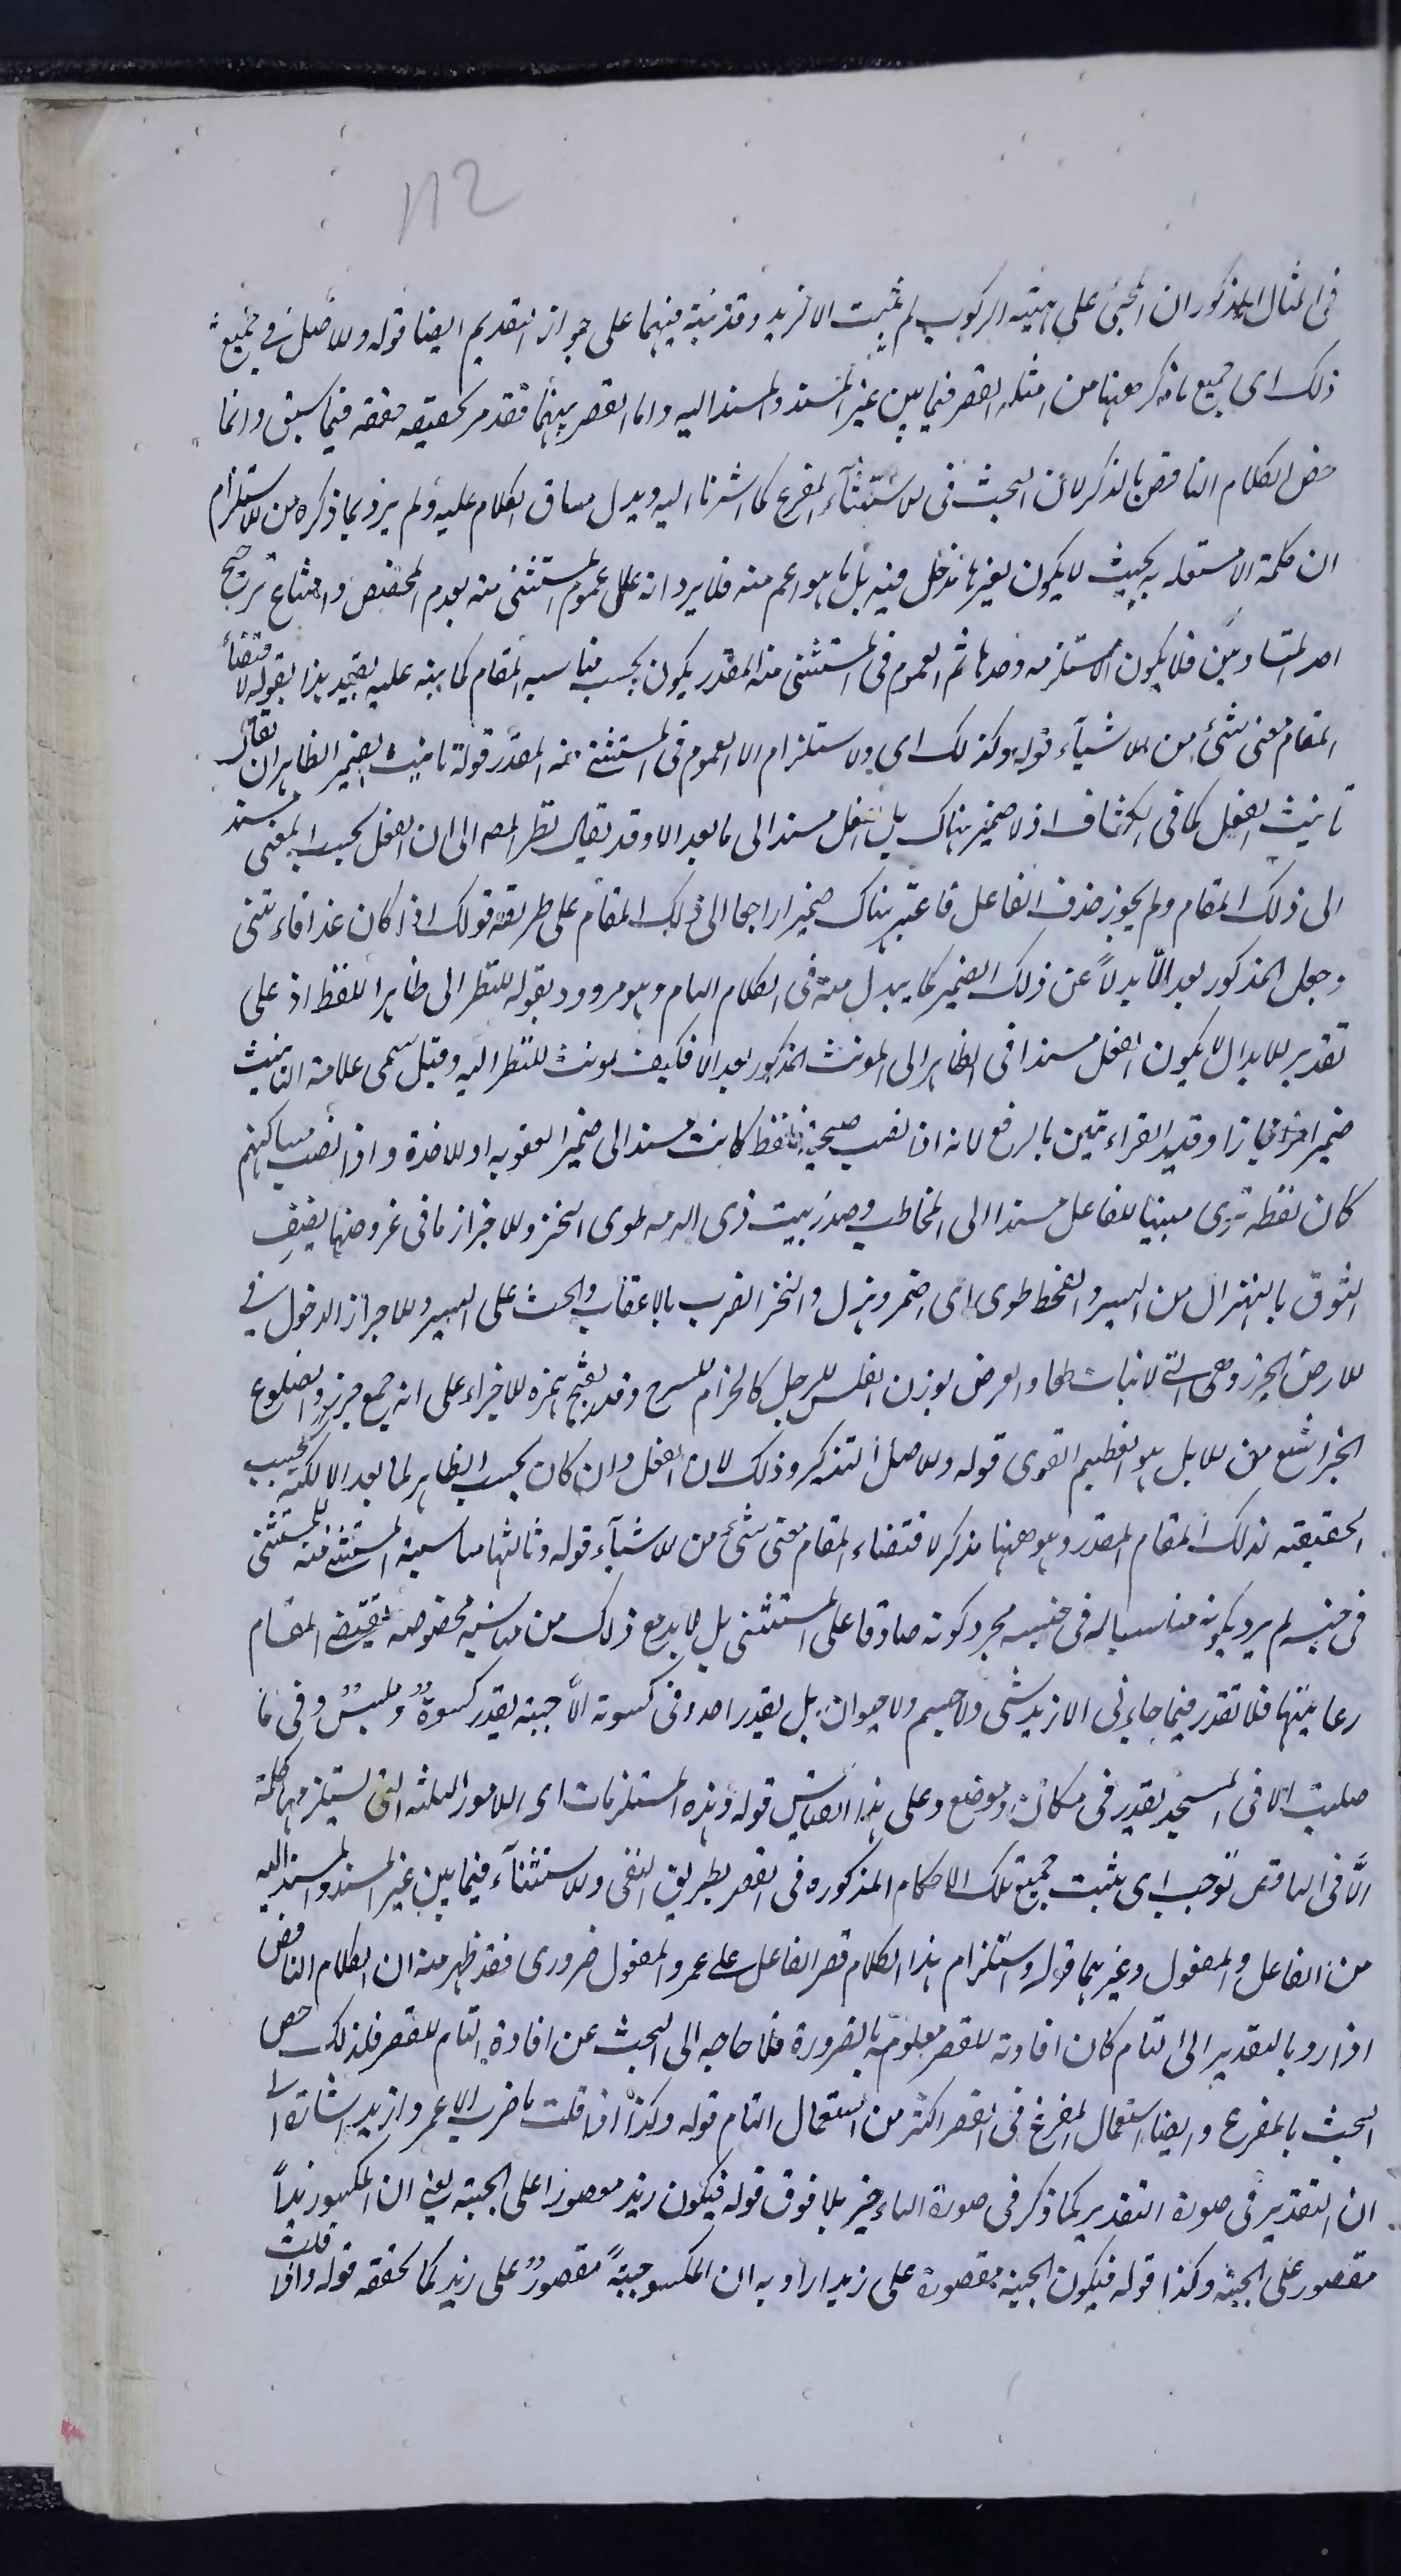 112
فى المثال المذكور ان المجئ على هيئة الركوب لم يثبت الا لزيد وقد نبّه فيهما على جواز التقديم ايضا قوله والاصل فى جميع
ذلك اى جميع ما ذكر ههنا من امثلة القصر فيما بين غير المسند والمسند اليه واما القصر بينهما فقد مر تحقيقه حققه فيما سبق وانما
خص الكلام الناقص بالذكر لان البحث فى الاستثناء المفرغ كما اشرنا اليه ويدل مساق الكلام عليه ولم يرد بما ذكره من الاستلزام
ان كلمة الا مستقلة به بحيث لا يكون لغيرها مدخل فيه بل ما هو اعم منه فلا يرد انه علل عموم المستثنى منه بعدم المخصص وامتناع ترجيح
احد المتساويين فلا يكون الا مستلزمه وحدها ثم العموم فى المستثنى منه المقدر يكون بحسب مناسبه المقام كما نبه عليه بقيد هذا بقوله لاقتضاء
المقام معنى شئ من الاشياء قوله وكذلك اى ولاستلزام الا العموم فى المستثنى منه المقدر قوله تانيث الضمير الظاهر ان يقال
تانيث الفعل كما فى الكشاف اذ لا ضمير هناك بل الفعل مسند الى ما بعد الا وقد يقال نظر المص الى ان الفعل بحسب المعنى مسند
الى ذلك المقام ولم يجوز حذف الفاعل فاعتبر هناك ضميرا راجعا الى ذلك المقام على طريقة قولك اذا كان غدا فاءتنى
وجعل المذكور بعد الّا بدلاً عن ذلك الضمير كما يبدل منه فى الكلام التام وهو مردود بقوله للنظر الى ظاهر اللفظ اذ على
تقدير الابدال لا يكون الفعل مسندا فى الظاهر الى المونث المذكور بعد الا فكيف يونث للنظر اليه وقيل سمى علامة التانيث
ضميرا مجازا وقيد القراءتين بالرفع لانه اذا نصب صيحة فلفظ كانت مسند الى ضمير العقوبه او الاخذة واذا نصب مساكنهم
كان لفظه ترى مبنيا للفاعل مسندا الى المخاطب وصدر بيت ذى الرمه طوى النحز والاجراز ما فى غروضها يصف
النوق بالهزال من السير والقحط طوى اى اضمر وهزل والنحز الضرب بالاعقاب والحث على السير والاجراز الدخول فى
الارض الجرز وهى التى لا نبات بها والغرض بوزن الفلس للرحل كالحزام للسرج وقد يفتح همزه الاجراز على انه جمع جرز والضلوع
الجراشع من الابل هو العظيم القوى قوله والاصل التذكير وذلك لان الفعل وان كان بحسب الظاهر لما بعد الا لكنه بحسب
الحقيقه لذلك المقام المقدر وهو ههنا مذكر لاقتضاء المقام معنى شئ من الاشياء قوله وثالثها مناسبة المستثنى منه للمستثنى
فى جنسه لم يرد بكونه مناسبا له فى جنسه مجرد كونه صادقا على المستثنى بل لا بد مع ذلك من مناسبة مخصوصه يقتضى المقام
رعايتها فلا تقدر فيما جاءنى الا زيد شى ولا جسم ولا حيوان بل يقدر احد وفى كسوته الّا جبته يقدر كسوةً وملبسٌ وفى ما
صليت الا فى المسجد يقدر فى مكان وموضع وعلى هذا القياس قوله وهذه المستلزمات اى الامور الثلثه التى يستلزمها كلمة
الّا فى الناقص توجب اى يثبت جميع تلك الاحكام المذكوره فى القصر بطريق النفى والاستثناء فيما بين غير المسند والمسند اليه
من الفاعل والمفعول وغيرهما قوله واستلزام هذا الكلام قصر الفاعل على عمرو المفعول ضرورى فقد ظهر منه ان الكلام الناقص
اذا رد بالتقدير الى التام كان افادته للقصر معلوم بالضرورة فلا حاجه الى البحث عن افادة التام للقصر فلذلك خص
البحث بالمفرغ وايضا استعمال المفرغ فى القصر اكثر من استعمال التام قوله وكذا اذا قلت ما ضرب الا عمرو ازيد اشارة الى
ان التقدير فى صورة التقدير كما ذكر فى صورة التاءخير بلا فرق قوله فيكون زيد مقصورا على الجبته يعنى ان المكسو زيداً
مقصور على الجبته وكذا قوله فيكون الجبة مقصورة على زيد اراد به ان المكسو جبتةً مقصورٌ على زيد كما تحققه قوله واذا قلت